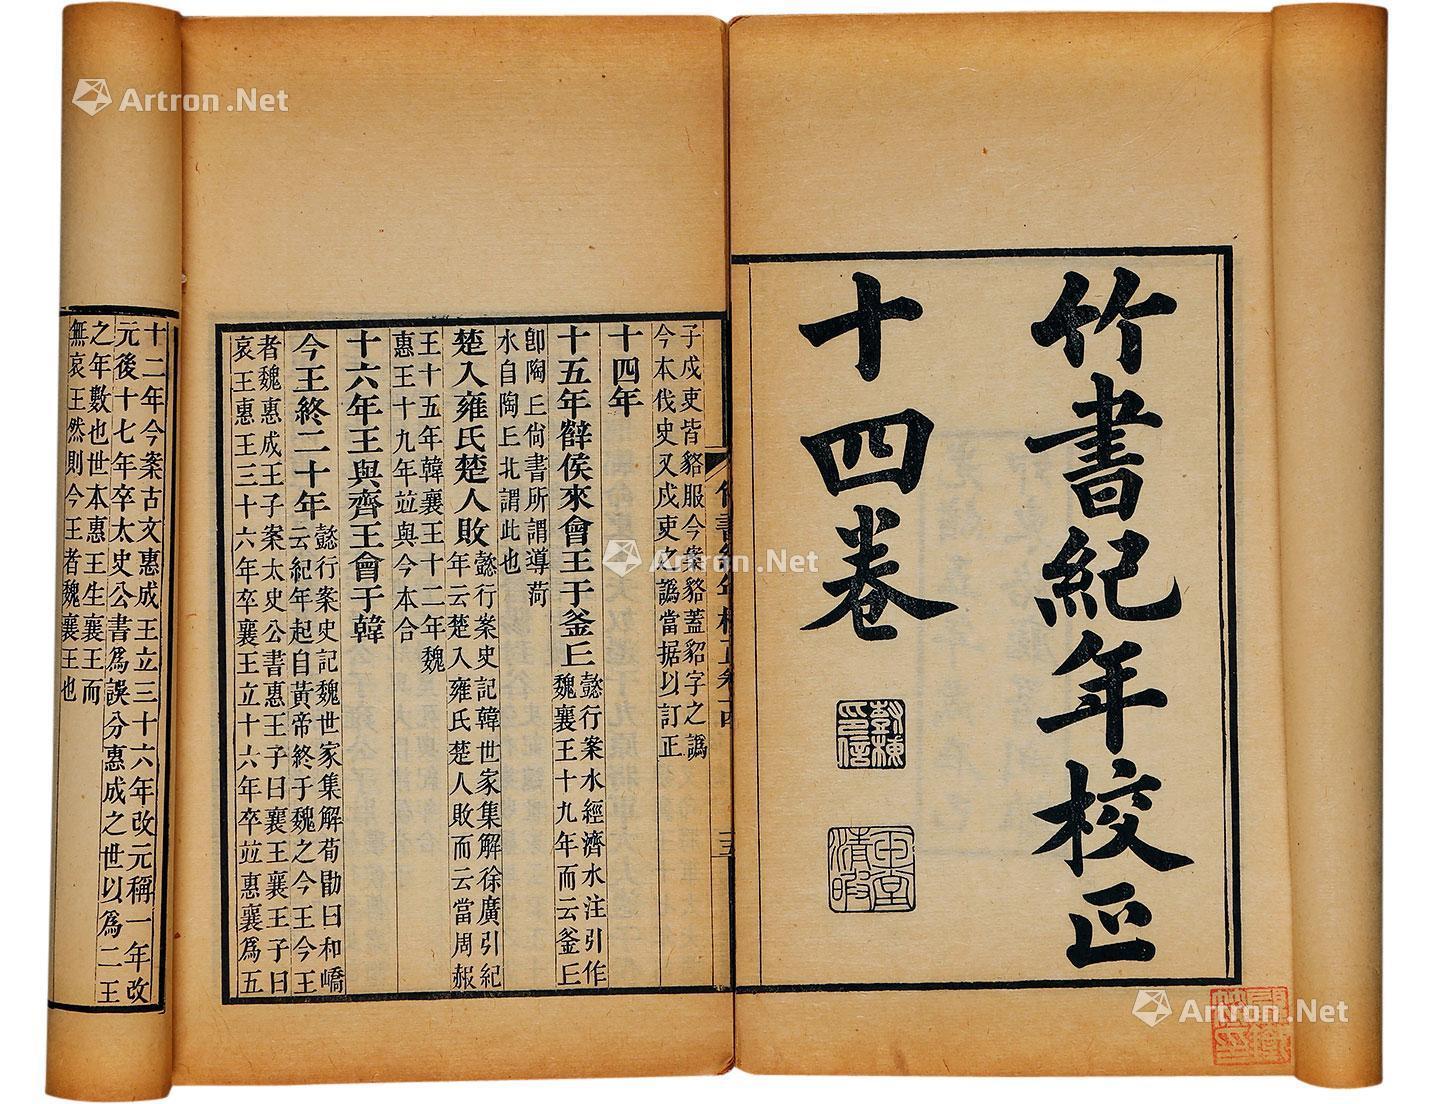 竹書紀年校正
十四卷
子戍吏皆貉服今案貉蓋貂字之譌
今本伐史又戍吏之譌當据以訂正
十四年
十五年薛侯來會王于釜丘
懿行案水經濟水注引作
魏襄王十九年而云釜丘
卽陶丘尙書所謂導菏
水自陶丘北謂此也
楚入雍氏楚人敗
懿行案史記韓世家集解徐廣引紀
年云楚入雍氏楚人敗而云當周赧
王十五年韓襄王十二年魏
惠王十九年竝與今本合
十六年王與齊王會于韓
今王終二十年
懿行案史記魏世家集解荀勖曰和嶠
云紀年起自黃帝終于魏之今王今王
者魏惠成王子案太史公書惠王子曰襄王襄王子曰
哀王惠王三十六年卒襄王立十六年卒竝惠襄爲五
十二年今案古文惠成王立三十六年改元稱一年改
元後十七年卒太史公書爲誤分惠成之世以爲二王
之年數也世本惠王生襄王而
無哀王然則今王者魏襄王也
Artron.Net
Artron.Net
Artron.Net
Artron.Net